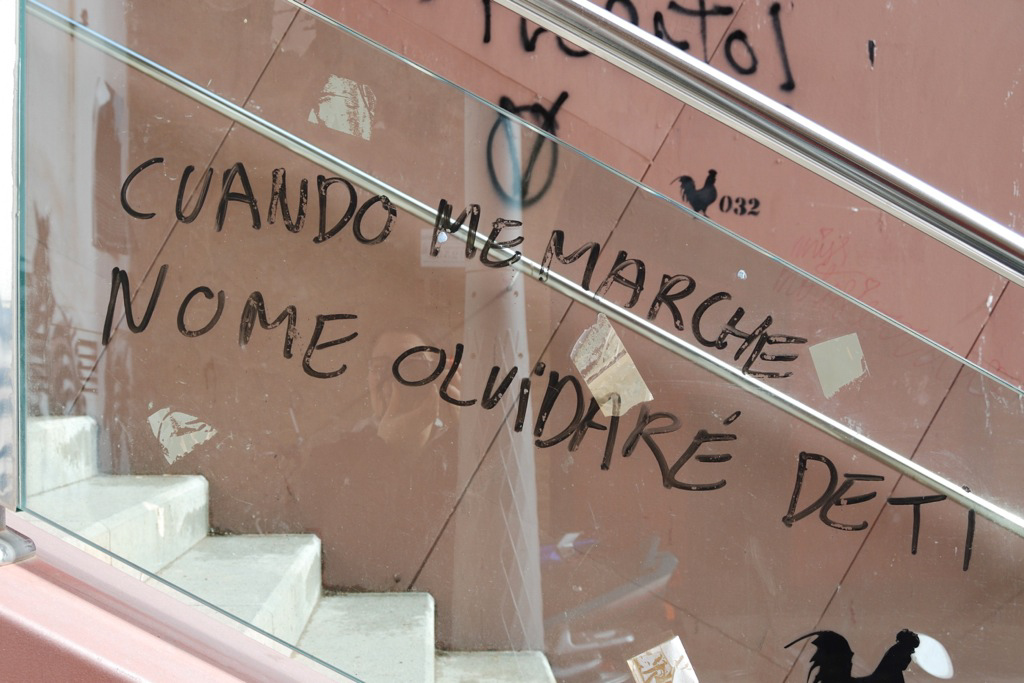 032
CUANDO ME MARCHE
NO ME OLVIDARÉ DE TI